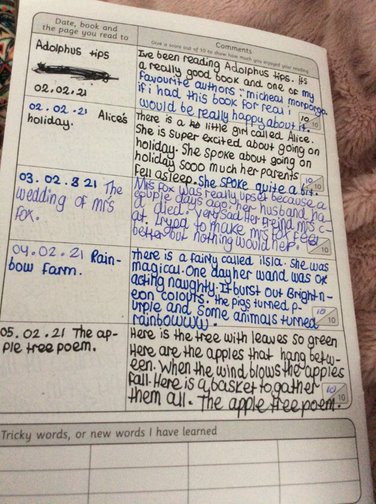 Date, book and
the page you read to
Comments
Give a score out of 10 to show how much you enjoyed your reading.
Adolphus tips
02.02.21
I've been reading Adolphus tips. Its
a really good book and one of my
favourite authors: micheal morporga
if i had this book for real i
would be really happy about it.
10
10
02.02.21 Alice's
holiday.
There is a little girl called Alice.
She is super excited about going on
holiday. She spoke about going on
holiday sooo much her parents
fell asleep. She spoke quite a bit.
10
10
03.02.821 The
wedding of mrs
Fox.
Mrs Fox was really upset because a
couple days ago her husband ha-
d died. Very sad. Her freind mrs c-
at. Tryed to make mrs fox feel
better but nothing would help.
04.02.21 Rain-
bow Farm.
there is a fairy called ilsia. She was
magical. One day her wand was
acting naughty. It burst out Bright n-
eon colours. The pigs turned p-
urple and some animals turned
rainbowwww.
10
10
05.02.21 The ap-
ple tree poem.
Here is the tree with leaves so green
Here are the apples that hang betw-
een. When the wind blows the apples
fall. Here is a basket to gather
them all. The apple tree poem.
10
10
Tricky words, or new words I have learned